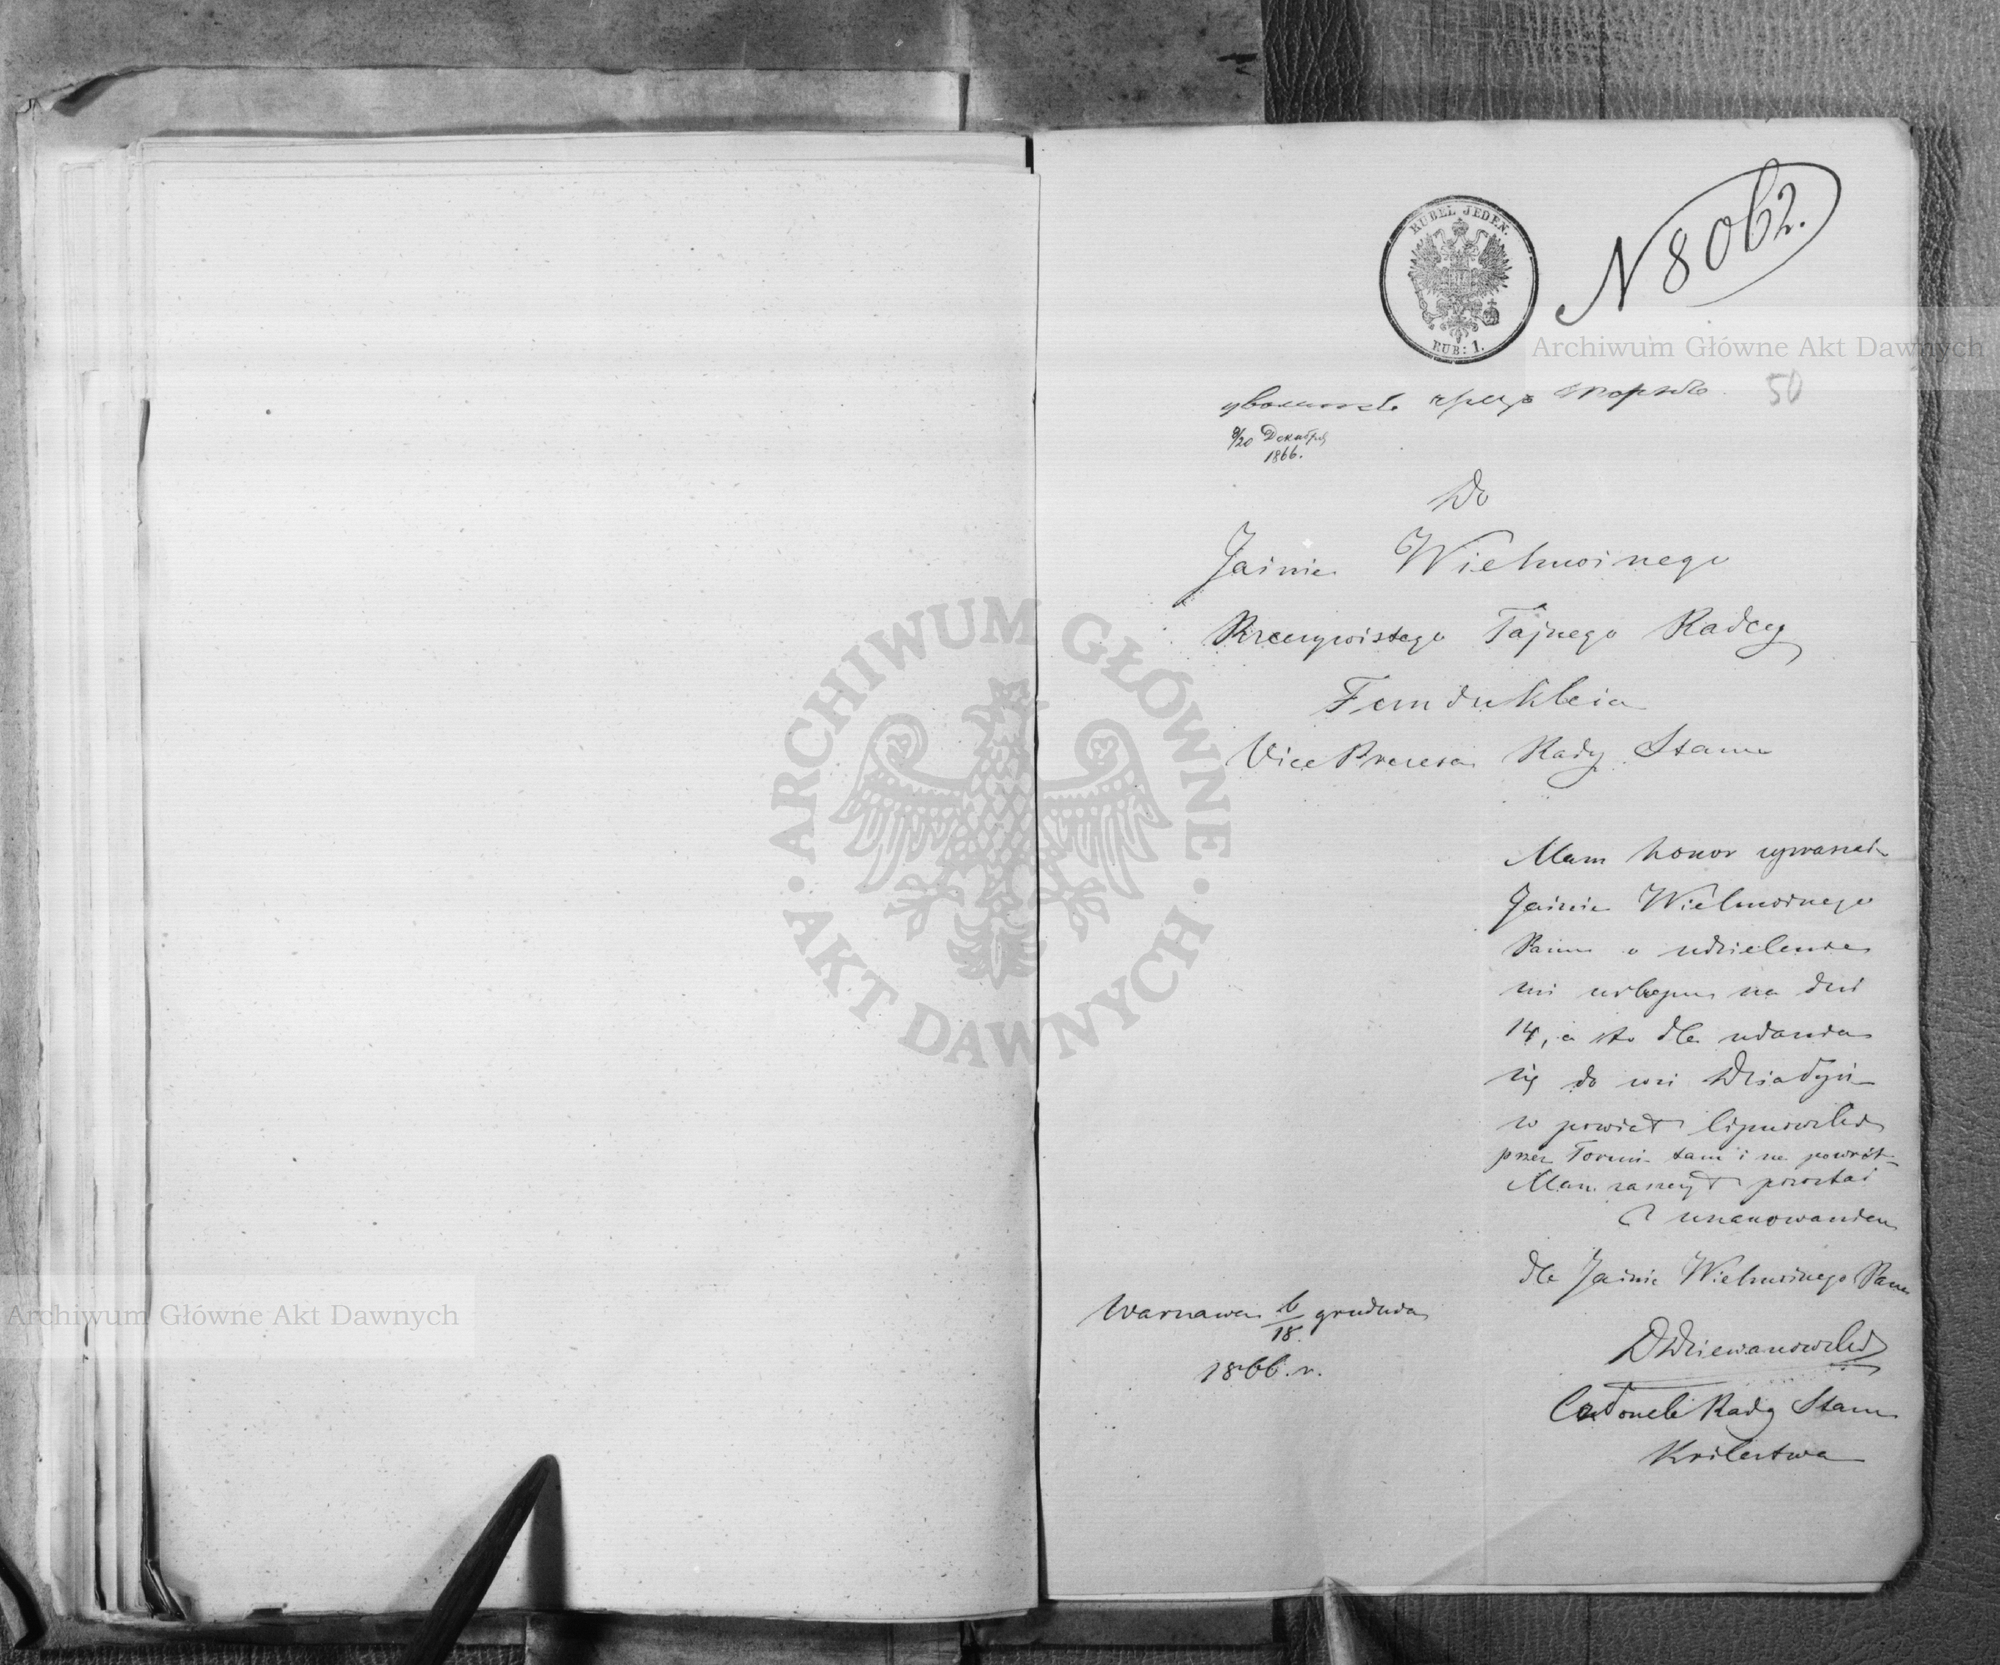 RUBEL JEDEN.
RUB: 1.
N 8062.
50
8/20 Декабря
1866.
Do
Jaśnie Wielmożnego
Rzeczywistego Tajnego Radcy
Fundukleia
Vice Prezesa Rady Stanu
Mam honor upraszać
Jaśnie Wielmożnego
Pana o udzielenie
mi urlopu na dni
14, a to dla udania
się do wsi Działyń
w powiat Lipnowski
przez Toruń tam i na powrót
Mam zaszczyt pozostać
z uszanowaniem
dla Jaśnie Wielmożnego Pana
Warszawa 6/18 grudnia
1866 r.
DDziewanowski
Członek Rady Stanu
Królestwa
Archiwum Główne Akt Dawnych
ARCHIWUM GŁÓWNE · AKT DAWNYCH ·
Archiwum Główne Akt Dawnych